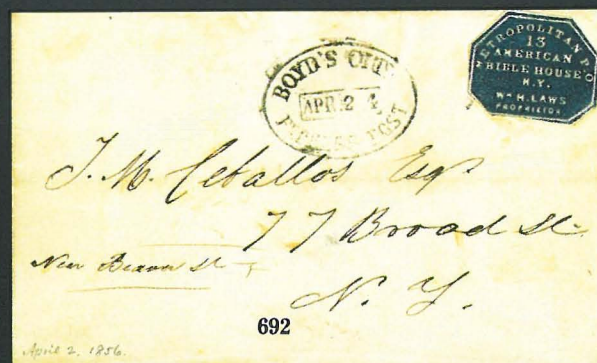 BOYD'S CITY
APR 2 4
EXPRESS POST
METROPOLITAN P.O
13
AMERICAN
BIBLE HOUSE
N.Y.
Wm H. LAWS
PROPRIETOR
J. M. Ceballos Esqr
77 Broad St.
Near Beaver St
N. Y.
692
April 2, 1856.